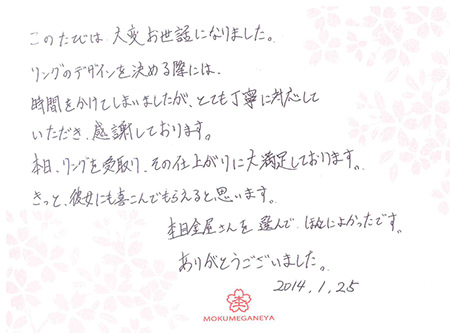 このたびは、大変お世話になりました。
リングのデザインを決める際には、
時間をかけてしまいましたが、とても丁寧に対応して
いただき、感謝しております。
本日、リングを受取り、その仕上がりに大満足しております。
きっと、彼女にも喜こんでもらえると思います。
杢目金屋さんを選んで、ほんとによかったです。
ありがとうございました。
2014.1.25
MOKUMEGANEYA